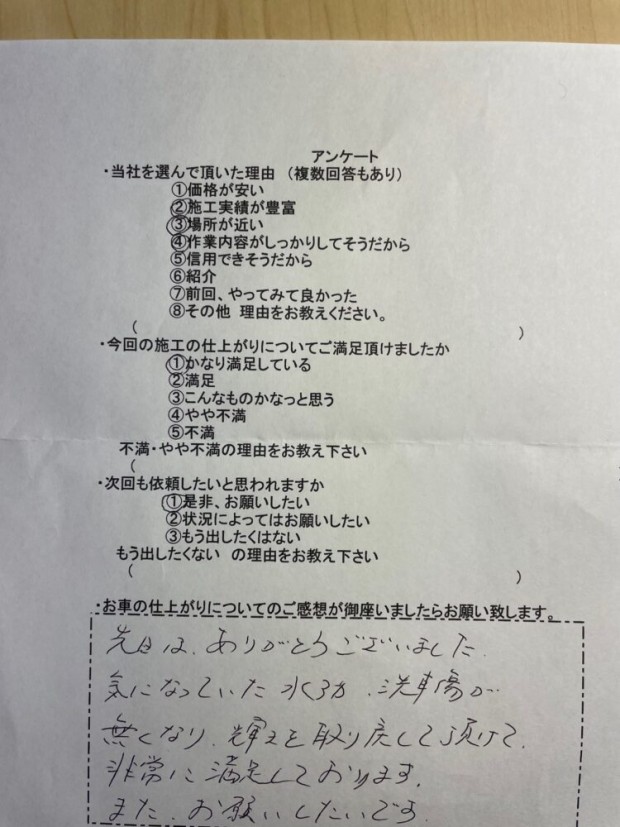 アンケート
・当社を選んで頂いた理由 （複数回答もあり）
①価格が安い
②施工実績が豊富
③場所が近い
④作業内容がしっかりしてそうだから
⑤信用できそうだから
⑥紹介
⑦前回、やってみて良かった
⑧その他 理由をお教えください。
( )
・今回の施工の仕上がりについてご満足頂けましたか
①かなり満足している
②満足
③こんなものかなっと思う
④やや不満
⑤不満
不満・やや不満の理由をお教え下さい
(
・次回も依頼したいと思われますか
①是非、お願いしたい
②状況によってはお願いしたい
③もう出したくはない
もう出したくない の理由をお教え下さい
( )
・お車の仕上がりについてのご感想が御座いましたらお願い致します。
先日は、ありがとうございました。
気になっていた水くろか、洗車傷が
無くなり、輝きを取り戻して頂けて、
非常に満足しております。
また、お願いしたいです。